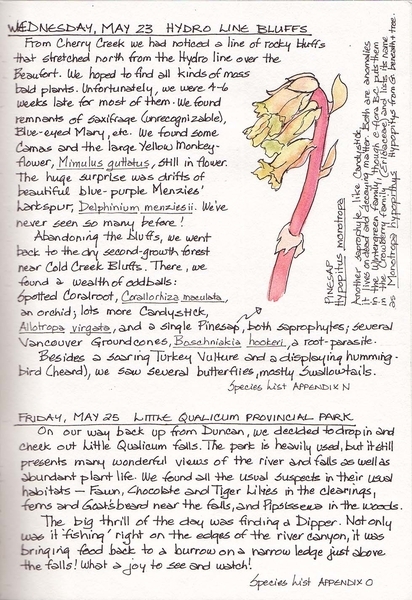 WEDNESDAY, MAY 23 HYDRO LINE BLUFFS
From Cherry Creek we had noticed a line of rocky bluffs
that stretched north from the Hydro line over the
Beaufort. We hoped to find all kinds of moss
bald plants. Unfortunately, we were 4-6
weeks late for most of them. We found
remnants of saxifrage (unrecognizable),
Blue-eyed Mary, etc. We found some
Camas and the large Yellow Monkey-
flower, Mimulus guttatus, still in flower.
The huge surprise was drifts of
beautiful blue-purple Menzies'
Larkspur, Delphinium menziesii. We've
never seen so many before!
Abandoning the bluffs, we went
back to the dry second-growth forest
near Cold Creek Bluffs. There, we
found a wealth of oddballs:
Spotted Coralroot, Corallorhiza maculata,
an orchid; lots more Candystick,
Allotropa virgata, and a single Pinesap, both saprophytes; several
Vancouver Groundcones, Boschniakia hookeri, a root-parasite.
Besides a soaring Turkey Vulture and a displaying humming-
bird (heard), we saw several butterflies, mostly Swallowtails.
Species List APPENDIX N
PINESAP
Hypopitus monotropa
Another saprophyte, like Candystick,
it lives on dead and decaying matter. Both are anomalies
in the Wintergreen family, though e-flora B.C. puts them
in the Crowberry family (Ericaceae) and lists its name
as Monotropa hypopithys. Hypopitys from Gk. beneath + tree.
FRIDAY, MAY 25 LITTLE QUALICUM PROVINCIAL PARK
On our way back up from Duncan, we decided to drop in and
check out Little Qualicum falls. The park is heavily used, but it still
presents many wonderful views of the river and falls as well as
abundant plant life. We found all the usual suspects in their usual
habitats – Fawn, Chocolate and Tiger Lilies in the clearings,
ferns and Goat's beard near the falls, and Pipsissewa in the woods.
The big thrill of the day was finding a Dipper. Not only
was it 'fishing' right on the edges of the river canyon, it was
bringing food back to a burrow on a narrow ledge just above
the falls! What a joy to see and watch!
Species List APPENDIX O